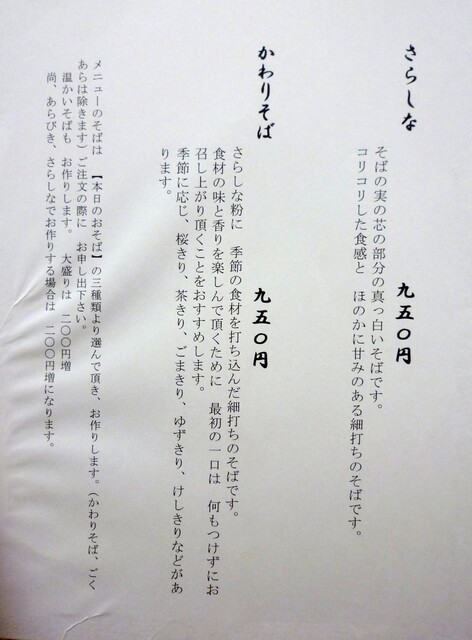 さらしな　九五〇円
そばの実の芯の部分の真っ白いそばです。
コリコリした食感と　ほのかに甘みのある細打ちのそばです。
かわりそば　九五〇円
さらしな粉に　季節の食材を打ち込んだ細打ちのそばです。
食材の味と香りを楽しんで頂くために　最初の一口は　何もつけずにお
召し上がり頂くことをおすすめします。
季節に応じ、桜きり、茶きり、ごまきり、ゆずきり、けしきりなどがあ
ります。
メニューのそばは　【本日のおそば】の三種類より選んで頂き、お作りします。（かわりそば、ごく
あらは除きます）ご注文の際に　お申し出下さい。
温かいそばも　お作りします。　大盛りは　二〇〇円増
尚、あらびき、さらしなでお作りする場合は　二〇〇円増になります。